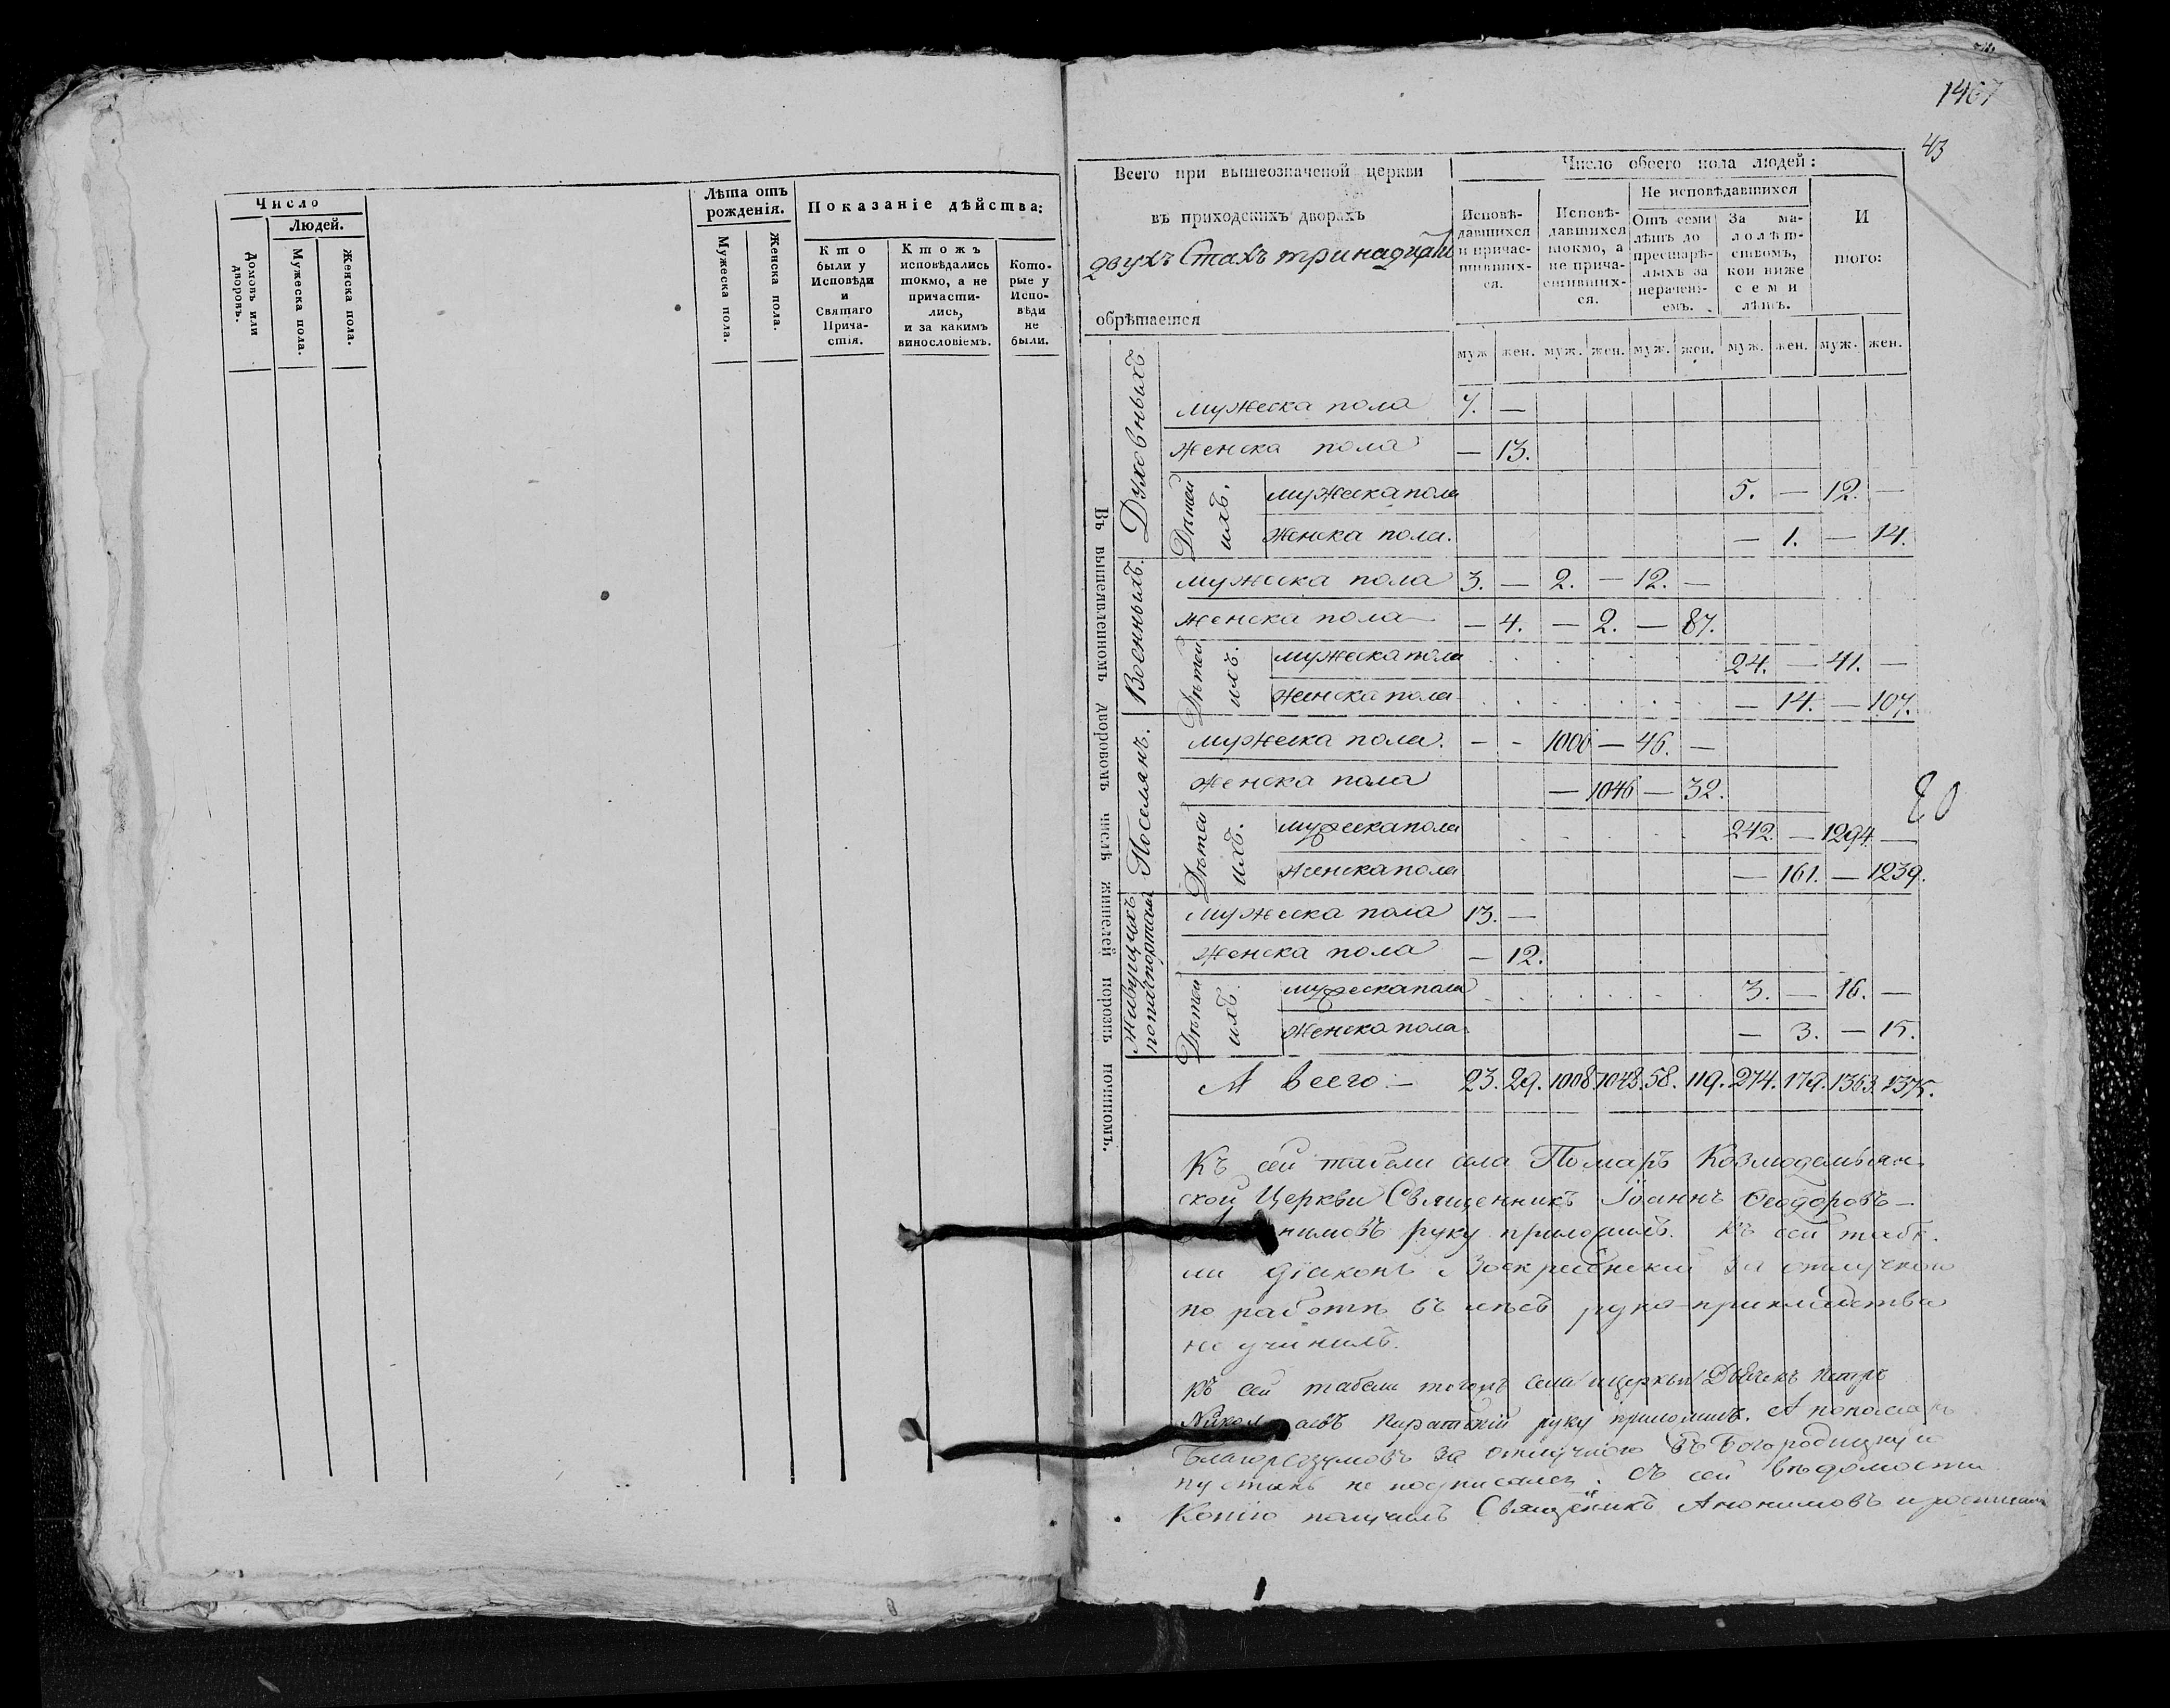 1467
43
Число
Людей.
Домовъ или дворовъ.
Мужеска пола.
Женска пола.
Лѣта отъ рожденія.
Мужеска пола.
Женска пола.
Показаніе дѣйства:
Кто были у Исповѣди и Святаго Прича-стія.
Ктожъ исповѣдались токмо, а не причасти-лись, и за какимъ винословіемъ.
Кото-рые у Испо-вѣди не были.
Всего при вышеозначеной церкви
въ приходскихъ дворахъ
двухъ Стахъ тринадцати
обрѣтается
Число обоего пола людей:
Исповѣ-давшихся и причас-тивших-ся.
Исповѣ-давшихся токмо, а не прича-стивших-ся.
Не исповѣдавшихся
Отъ семи лѣтъ до престарѣ-лыхъ за нерачені-емъ.
За ма-лолѣт-ствомъ, кои ниже семи лѣтъ.
И
того:
муж. жен. муж. жен. муж. жен. муж. жен. муж. жен.
Въ вышеявленномъ дворовомъ числѣ жителей порознь почином.
Духовныхъ
мужеска пола 7. —
женска пола — 13.
Дѣтей ихъ.
мужеска пола 5. — 12. —
женска пола. — 1. — 14.
Военныхъ.
мужеска пола 3. — 2. — 12. —
женска пола — 4. — 2. — 87.
Дѣтей ихъ.
мужеска пола 24. — 41. —
женска пола — 14. — 107.
Поселянъ.
мужеска пола. — - 1006 — 46. —
женска пола — 1046 — 32.
Дѣтей ихъ.
мужеска пола 242. — 1294. —
женска пола — 161. — 1239.
80
Живущихъ попашпортамъ
мужеска пола 13. —
женска пола — 12.
Дѣтей ихъ.
мужеска пола 3. — 16. —
женска пола — 3. — 15.
А всего — 23. 29. 1008. 1048. 58. 119. 274. 179. 1363. 1375.
Къ сей табели села Помаръ Козмодемьян-
ской Церкви Священникъ Іоаннъ Ѳеодоровъ —
нимовъ руку приложилъ. Къ сей табе.
ли діаконъ Воскресенскій за отлучкою
по работѣ въ лѣсъ руко-прикладства
не учинилъ.
Къ сей табели тогожъ села церкви Дьячекъ Петръ
Никол аевъ руку приложилъ. А пономарь
Благоразумовъ за отлучкою въ Богородицкую
пустынь не подписался. Съ сей вѣдомости
Копію получилъ Священникъ Анонимовъ и росписался